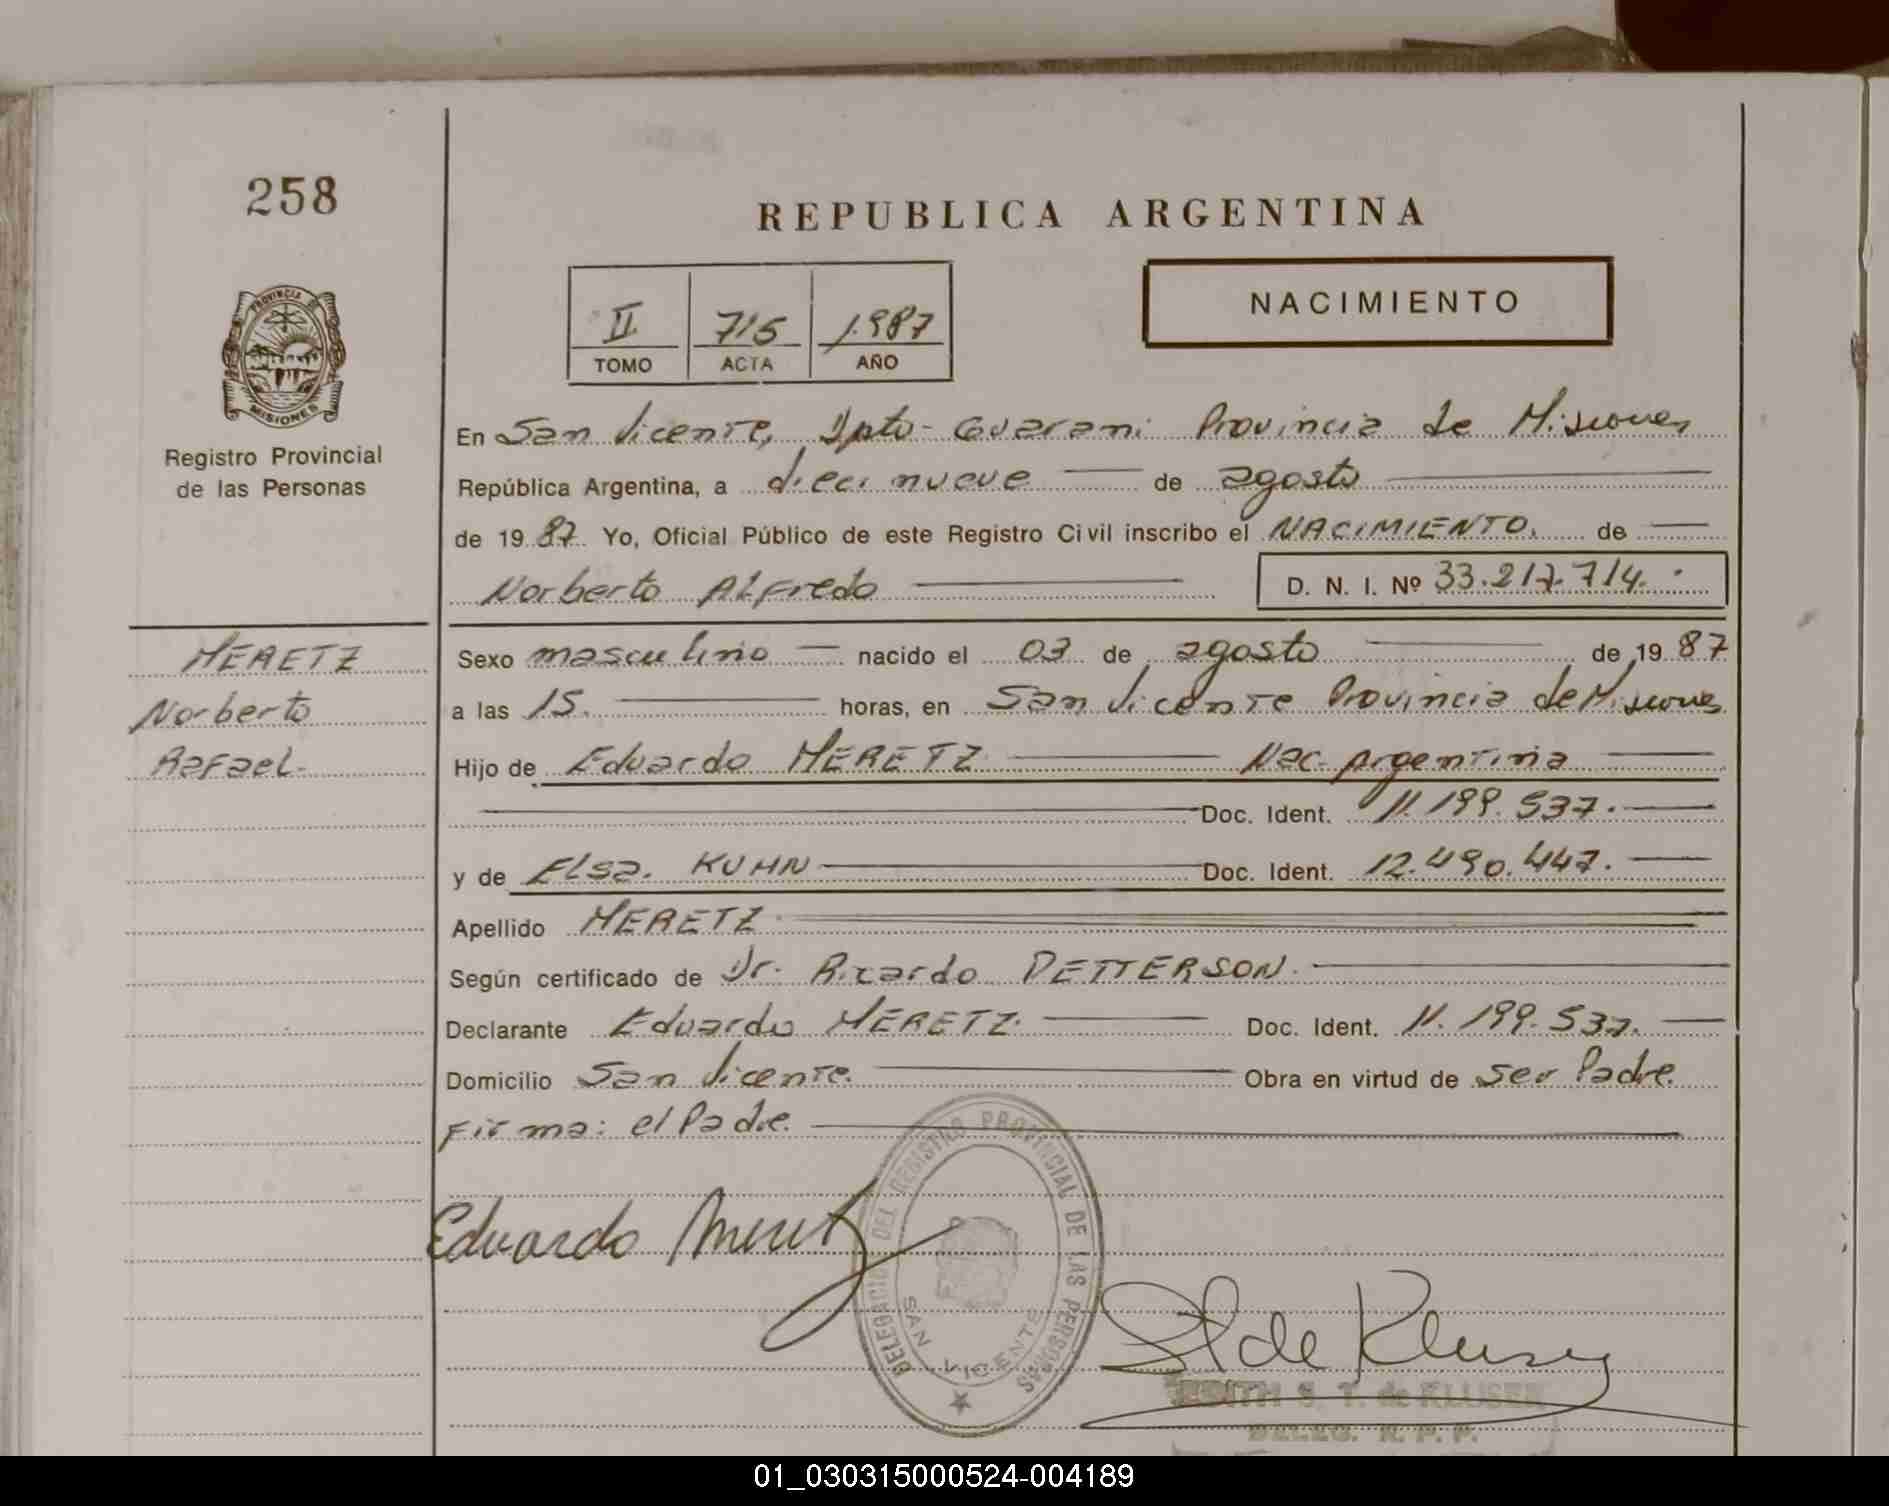 258
REPUBLICA ARGENTINA
II 715 1.987
TOMO ACTA AÑO
NACIMIENTO
PROVINCIA DE
MISIONES
Registro Provincial
de las Personas
En San Vicente, Dpto- Guarani Provincia de Misiones
República Argentina, a dieci nueve de agosto
de 19 87 Yo, Oficial Público de este Registro Civil inscribo el NACIMIENTO. de
Norberto Alfredo
D. N. I. Nº 33.217.714.
MERETZ
Norberto
Rafael.
Sexo masculino nacido el 03 de agosto de 19 87
a las 15. horas, en San Vicente Provincia de Misiones
Hijo de Eduardo MERETZ Nac. Argentina
Doc. Ident. 11.199.537.
y de Elsa. KUHN Doc. Ident. 12.490.447.
Apellido MERETZ
Según certificado de Dr. Ricardo PETTERSON.
Declarante Eduardo MERETZ. Doc. Ident. 11.199.537.
Domicilio San Vicente. Obra en virtud de ser Padre.
Firma: el Padre.
Eduardo Meretz
DELEGACION DEL REGISTRO PROVINCIAL DE LAS PERSONAS
SAN VICENTE
EDITH S. T. de KLUSEN
DELEG. R. P. P.
01_030315000524-004189